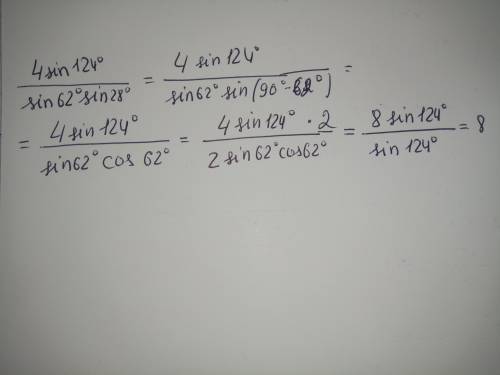 4 sin 124° / sin 62° sin 28° = 4 sin 124° / sin 62° sin (90° - 62°) =
= 4 sin 124° / sin 62° cos 62° = 4 sin 124° · 2 / 2 sin 62° cos 62° = 8 sin 124° / sin 124° = 8